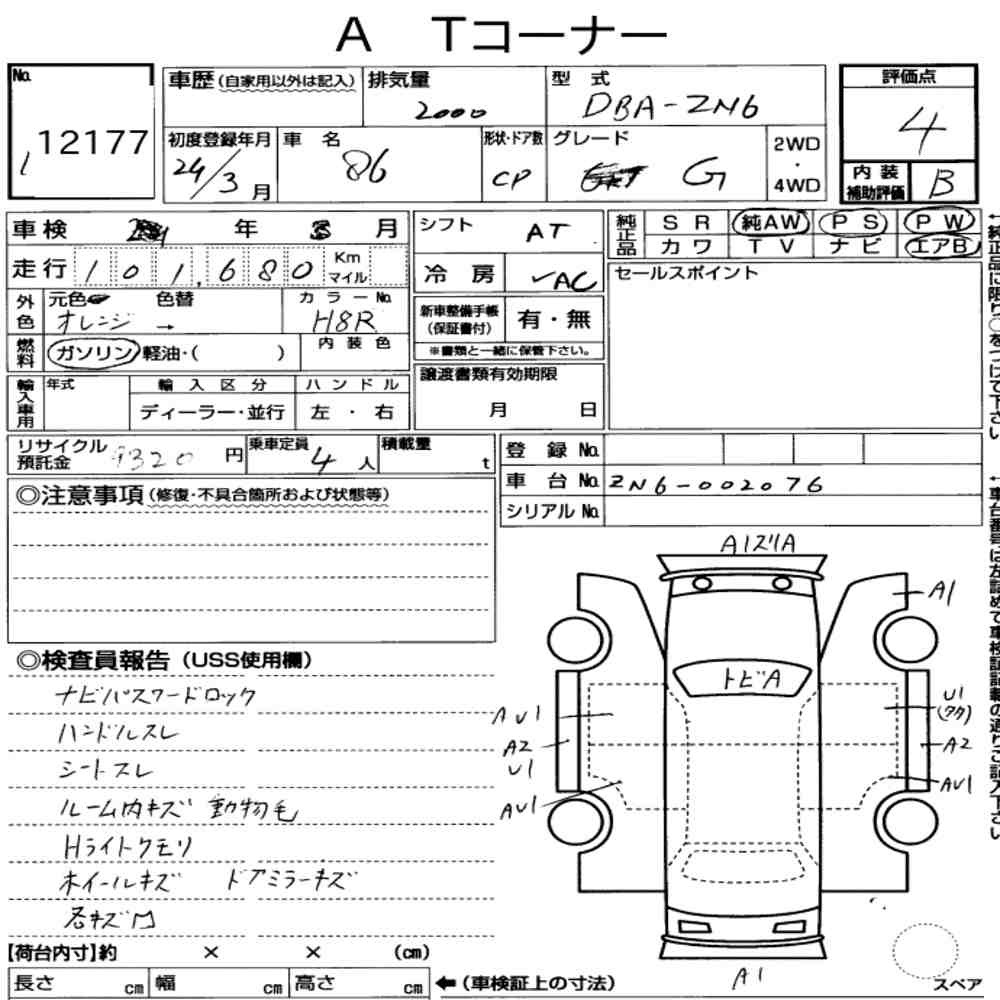 A Tコーナー
No. 12177
車歴（自家用以外は記入） 排気量 2000 型式 DBA-ZN6 評価点 4
初度登録年月 24/3月 車名 86 形状・ドア数 CP グレード G 2WD・4WD 内装補助評価 B
車検 年 月 シフト AT 純正品 SR 純AW PS PW
カワ TV ナビ エアB
走行 101,680 Km マイル 冷房 AC セールスポイント
外色 元色 オレンジ → 色替 カラーNo. H8R 新車整備手帳（保証書付） 有・無
※書類と一緒に保管下さい。
燃料 ガソリン 軽油・（ ） 内装色
譲渡書類有効期限 月 日
輸入車用 年式 輸入区分 ハンドル
ディーラー・並行 左・右
リサイクル預託金 9320円 乗車定員 4人 積載量 t
登録No.
車台No. ZN6-002076
シリアルNo.
◎注意事項（修復・不具合箇所および状態等）
◎検査員報告（USS使用欄）
ナビパスワードロック
ハンドルスレ
シートスレ
ルーム内キズ 動物毛
Hライトクモリ
ホイールキズ ドアミラーキズ
各キズ凹
A1ズリA
A1
トビA
AU1
A2
U1
AU1
U1
A2
AU1
A1
【荷台内寸】約 × × （cm）
長さ cm 幅 cm 高さ cm ←（車検証上の寸法）
スペア
←純正品に限り○をつけて下さい
←車台番号は左詰めで車検証記載の通りご記入下さい